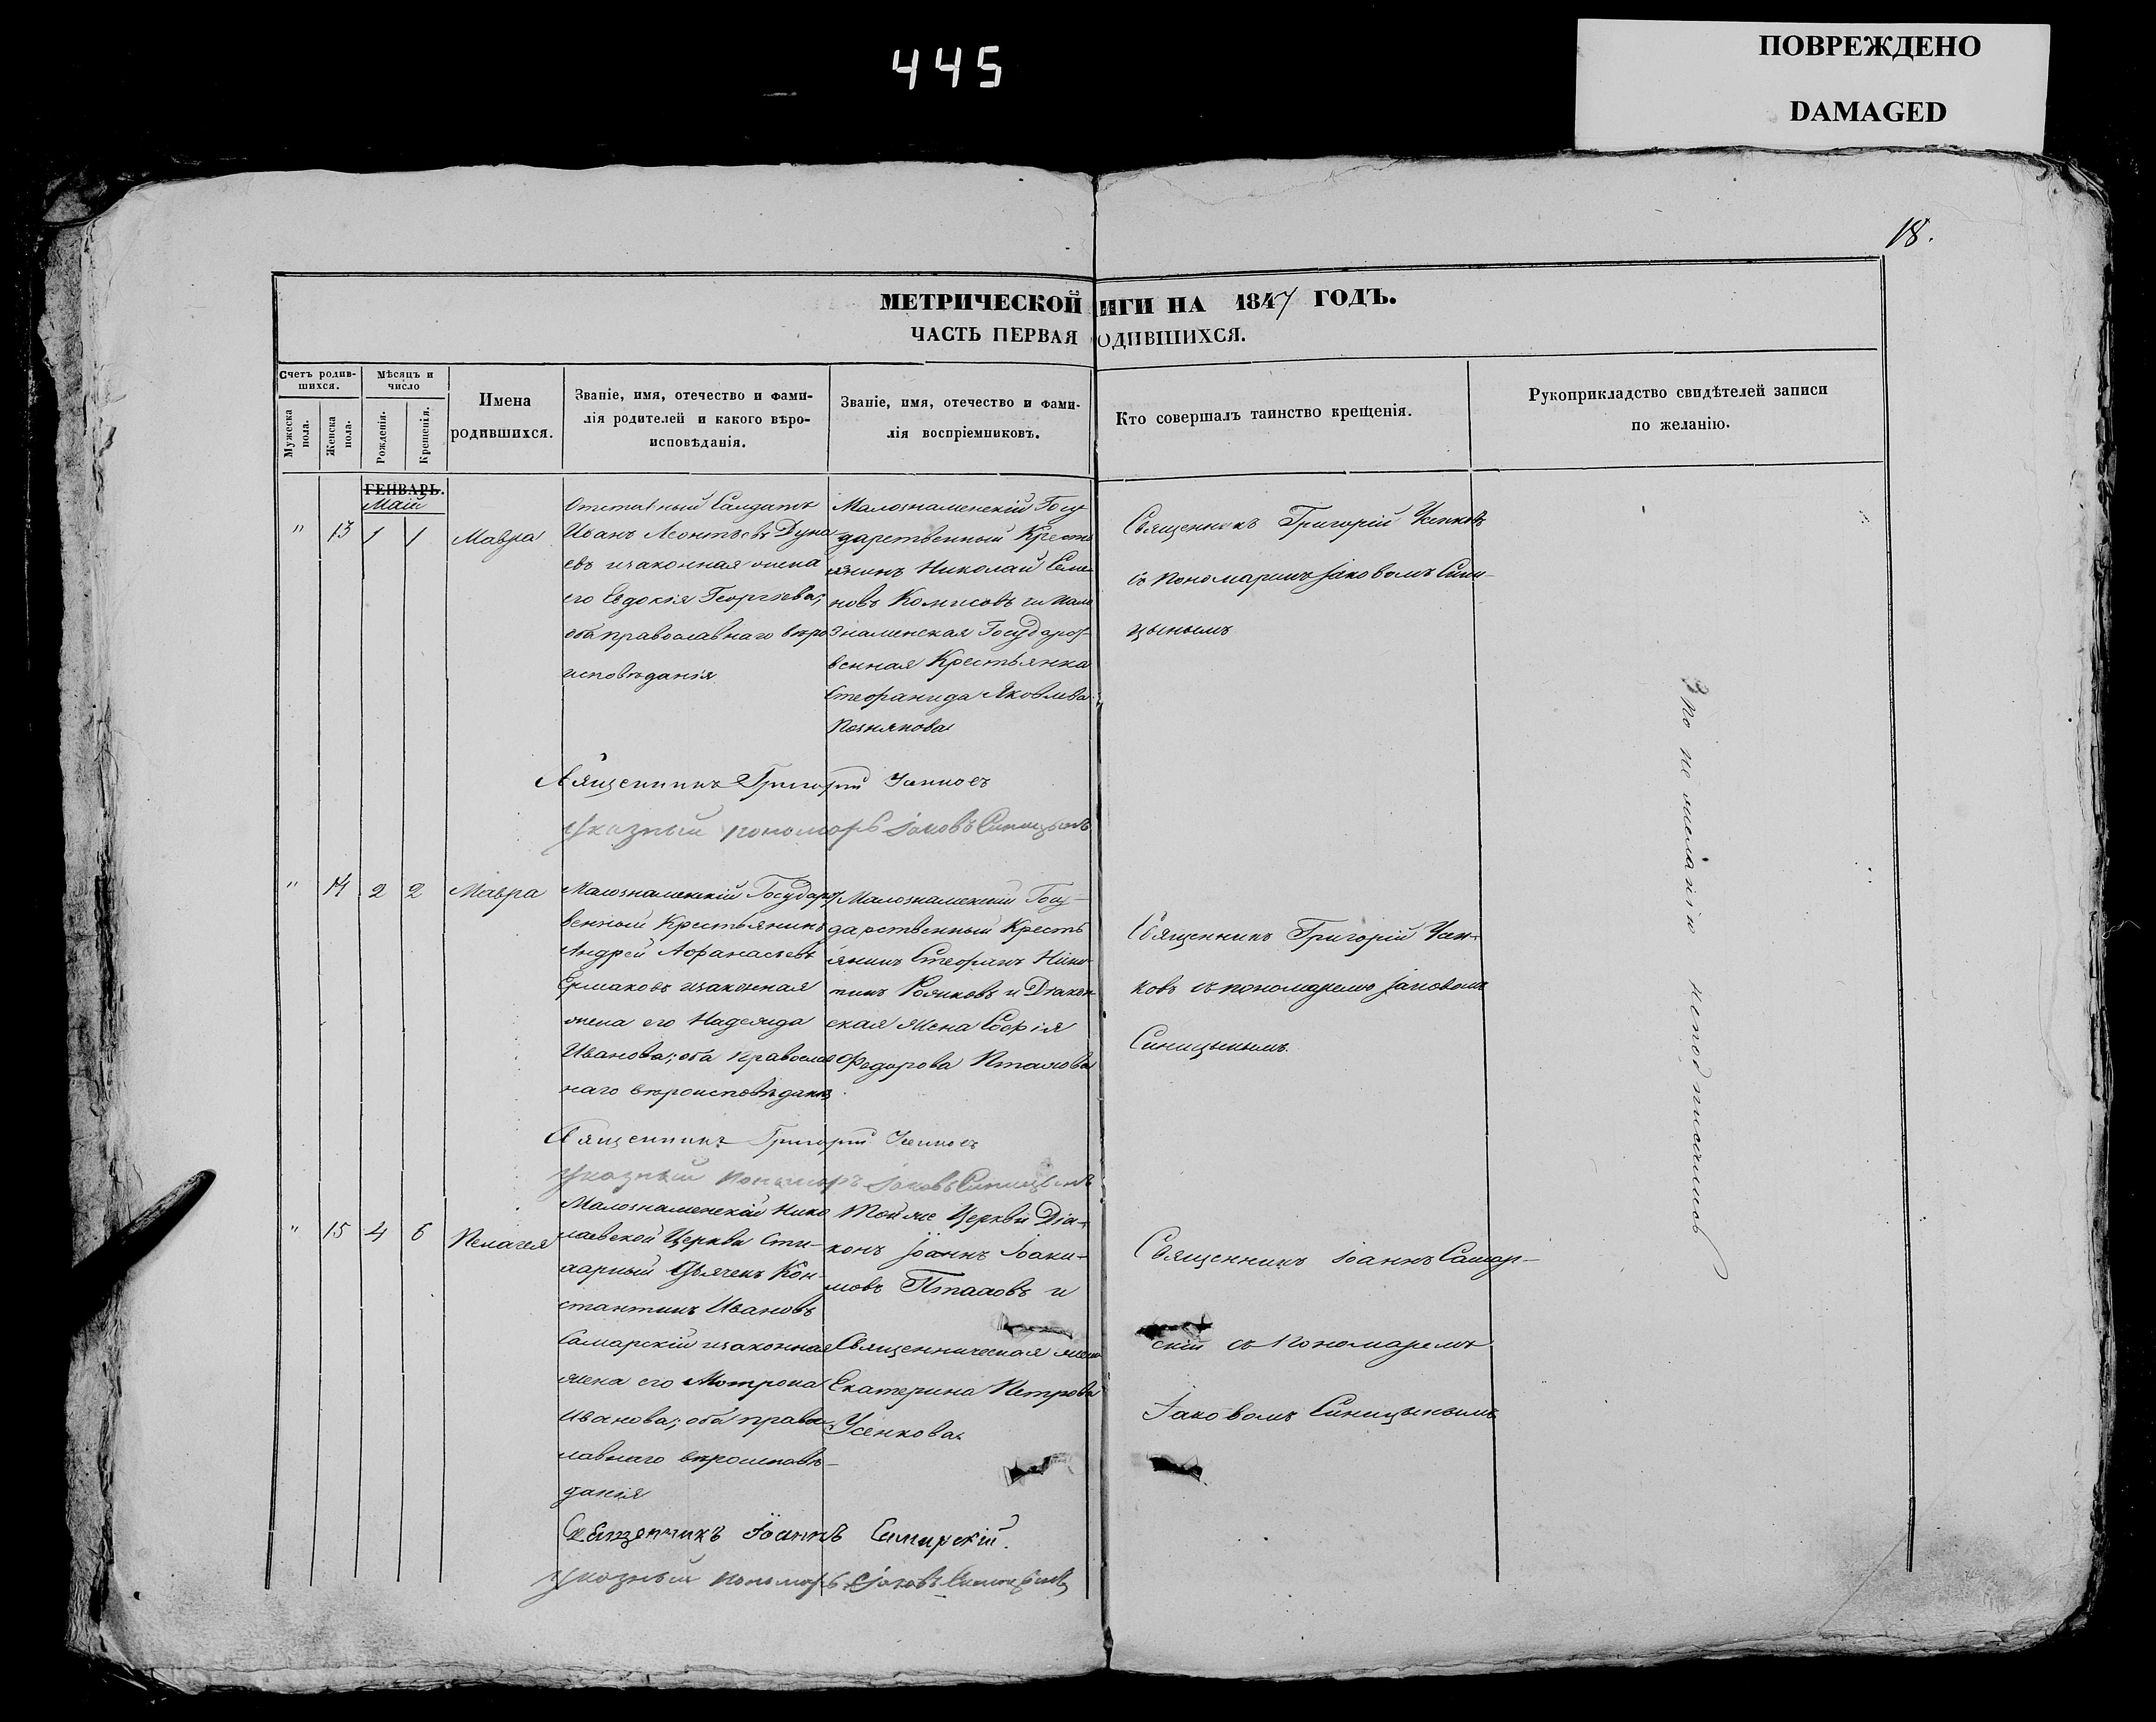 445
ПОВРЕЖДЕНО
DAMAGED
18.
МЕТРИЧЕСКОЙ ИГИ НА 1847 ГОДЪ.
ЧАСТЬ ПЕРВАЯ ОДИВШИХСЯ.
Счетъ родив-
шихся.
Мужеска
пола.
Женска
пола.
Мѣсяцъ и
число
Рожденія.
Крещенія.
Имена
родившихся.
Званіе, имя, отечество и фами-
лія родителей и какого вѣро-
исповѣданія.
Званіе, имя, отечество и фами-
лія воспріемниковъ.
Кто совершалъ таинство крещенія.
Рукоприкладство свидѣтелей записи
по желанію.
ГЕНВАРЬ.
Май
" 13 1 1 Мавра
Отставный Салдатъ
Иванъ Леонтьевъ Дуна
евъ изаконная жена
его Евдокія Георгіева;
оба православнаго вѣро
исповѣданія
Малознаменскій Госу
дарственный Кресть
янинъ Николай Семе
новъ и Мало
знаменская Государст
венная Крестьянка
Стефанида Яковлева
Познякова
Священникъ Григорій Усенковъ
съ Пономаремъ Іаковомъ Сини-
цынымъ
Священникъ Григорій Усенковъ
Указный пономарь Іаковъ Синицынъ
" 14 2 2 Мавра
Малознаменскій Государст
венный Крестьянинъ
Андрей Афанасьевъ
Ермаковъ изаконная
жена его Надежда
Иванова; оба православ
наго вѣроисповѣданія
Малознаменскій Госу-
дарственный Кресть
янинъ Стефанъ Ники-
тинъ и Діакон
ская жена Софія
Федорова Пталова
Священникъ Григорій Усен-
ковъ съ пономаремъ Іаковомъ
Синицынымъ.
Священникъ Григорій Усенковъ
Указный пономарь Іаковъ Синицынъ
" 15 4 6 Пелагея
Малознаменской Нико
лаевской Церкви Сти-
харный Дьячекъ Кон-
стантинъ Ивановъ
Самарскій изаконная
жена его Мотрона
Иванова; оба право
лавнаго вѣроисповѣ-
данія
Той же Церкви Діа-
конъ Іоаннъ Іоаки-
мовъ и
Священническая жена
Екатерина Петрова
Усенкова.
Священникъ Іоаннъ Самар-
скій съ Пономаремъ
Іаковомъ Синицынымъ
Священникъ Іоаннъ Самарскій.
Указный пономарь Іаковъ Синицынъ
По не желанію неподписались